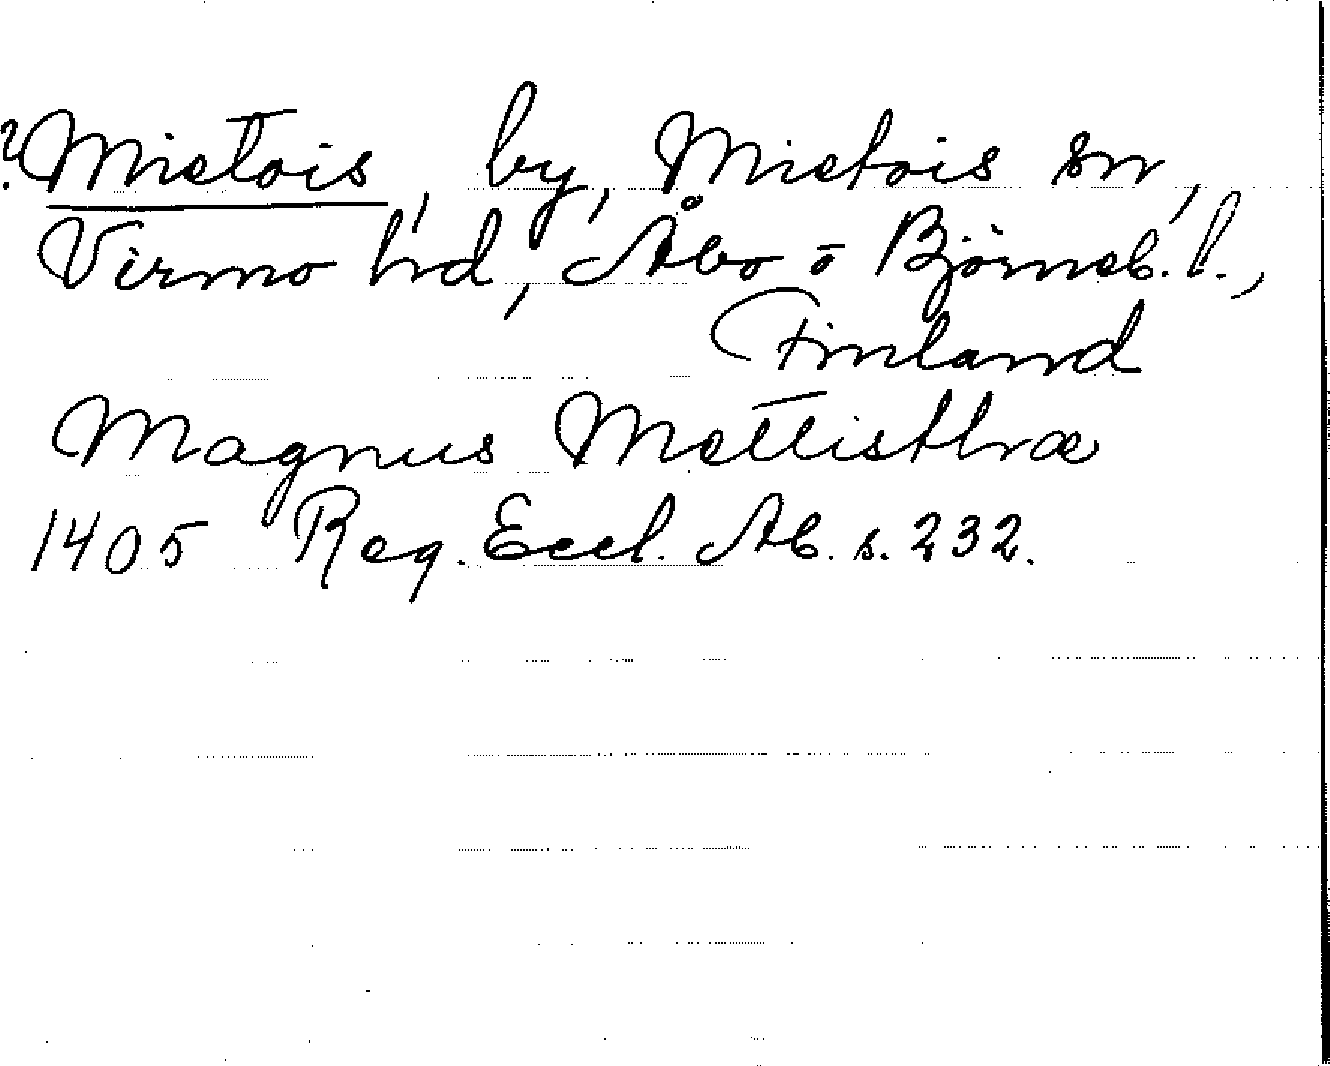 ?Mietois, by, Mietois sn,
Virmo hd, Åbo o Björneb. l.,
Finland
Magnus
1405 Reg. Eccl. Ab. s. 232.